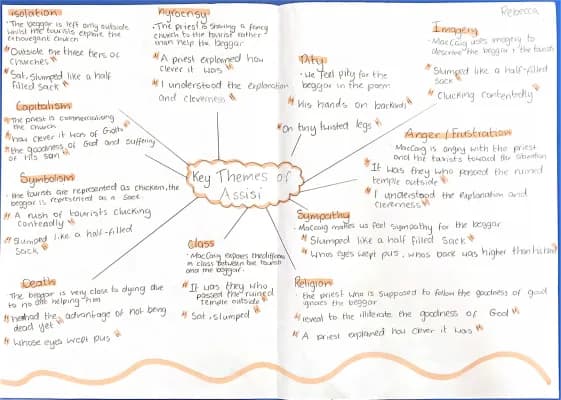 Rebecca
isolation
- The beggar is left only outside
whilst the tourists explore the
extravegant church
"Outside the three tiers of
churches"
"Sat, slumped like a half
filled sack"
hypocrisy
- The priest is showing a fancy
church to the tourist rather
than help the beggar
"A priest explained how
clever it was"
"I understood the explanation
and cleverness"
Pity
- We feel pity for the
beggar in the poem
"His hands on backwards"
"On tiny twisted legs"
Imagery
- MacCaig uses imagery to
describe the beggar & the tourists
"Slumped like a half-filled
sack"
"Clucking contentedly"
Capitalism
- The priest is commercialising
the church
"how clever it was of Giotto"
"the goodness of God and suffering
of His son"
Key Themes of
Assisi
Anger / Frustration
- MacCaig is angry with the priest
and the tourists toward the situation
"It was they who passed the ruined
temple outside"
"I understood the explanation and
cleverness"
Symbolism
- The tourists are represented as chicken, the
beggar is represented as a sack
"A rush of tourists clucking
contendly"
"Slumped like a half-filled
sack"
Sympathy
- MacCaig makes us feel sympathy for the beggar
"Slumped like a half filled sack"
"Whos eyes wept pus, whos back was higher than
Class
- MacCaig exposes the difference
in class between the tourists
and the beggar.
"It was they who
passed the ruined
temple outside"
"Sat, slumped"
Death
The beggar is very close to dying due
to no one helping him
"he had the advantage of not being
dead yet"
"Whose eyes wept pus"
Religion
- The priest who is supposed to follow the goodness of god
ignores the beggar
"reveal to the illiterate the goodness of God"
"A priest explained how clever it was"